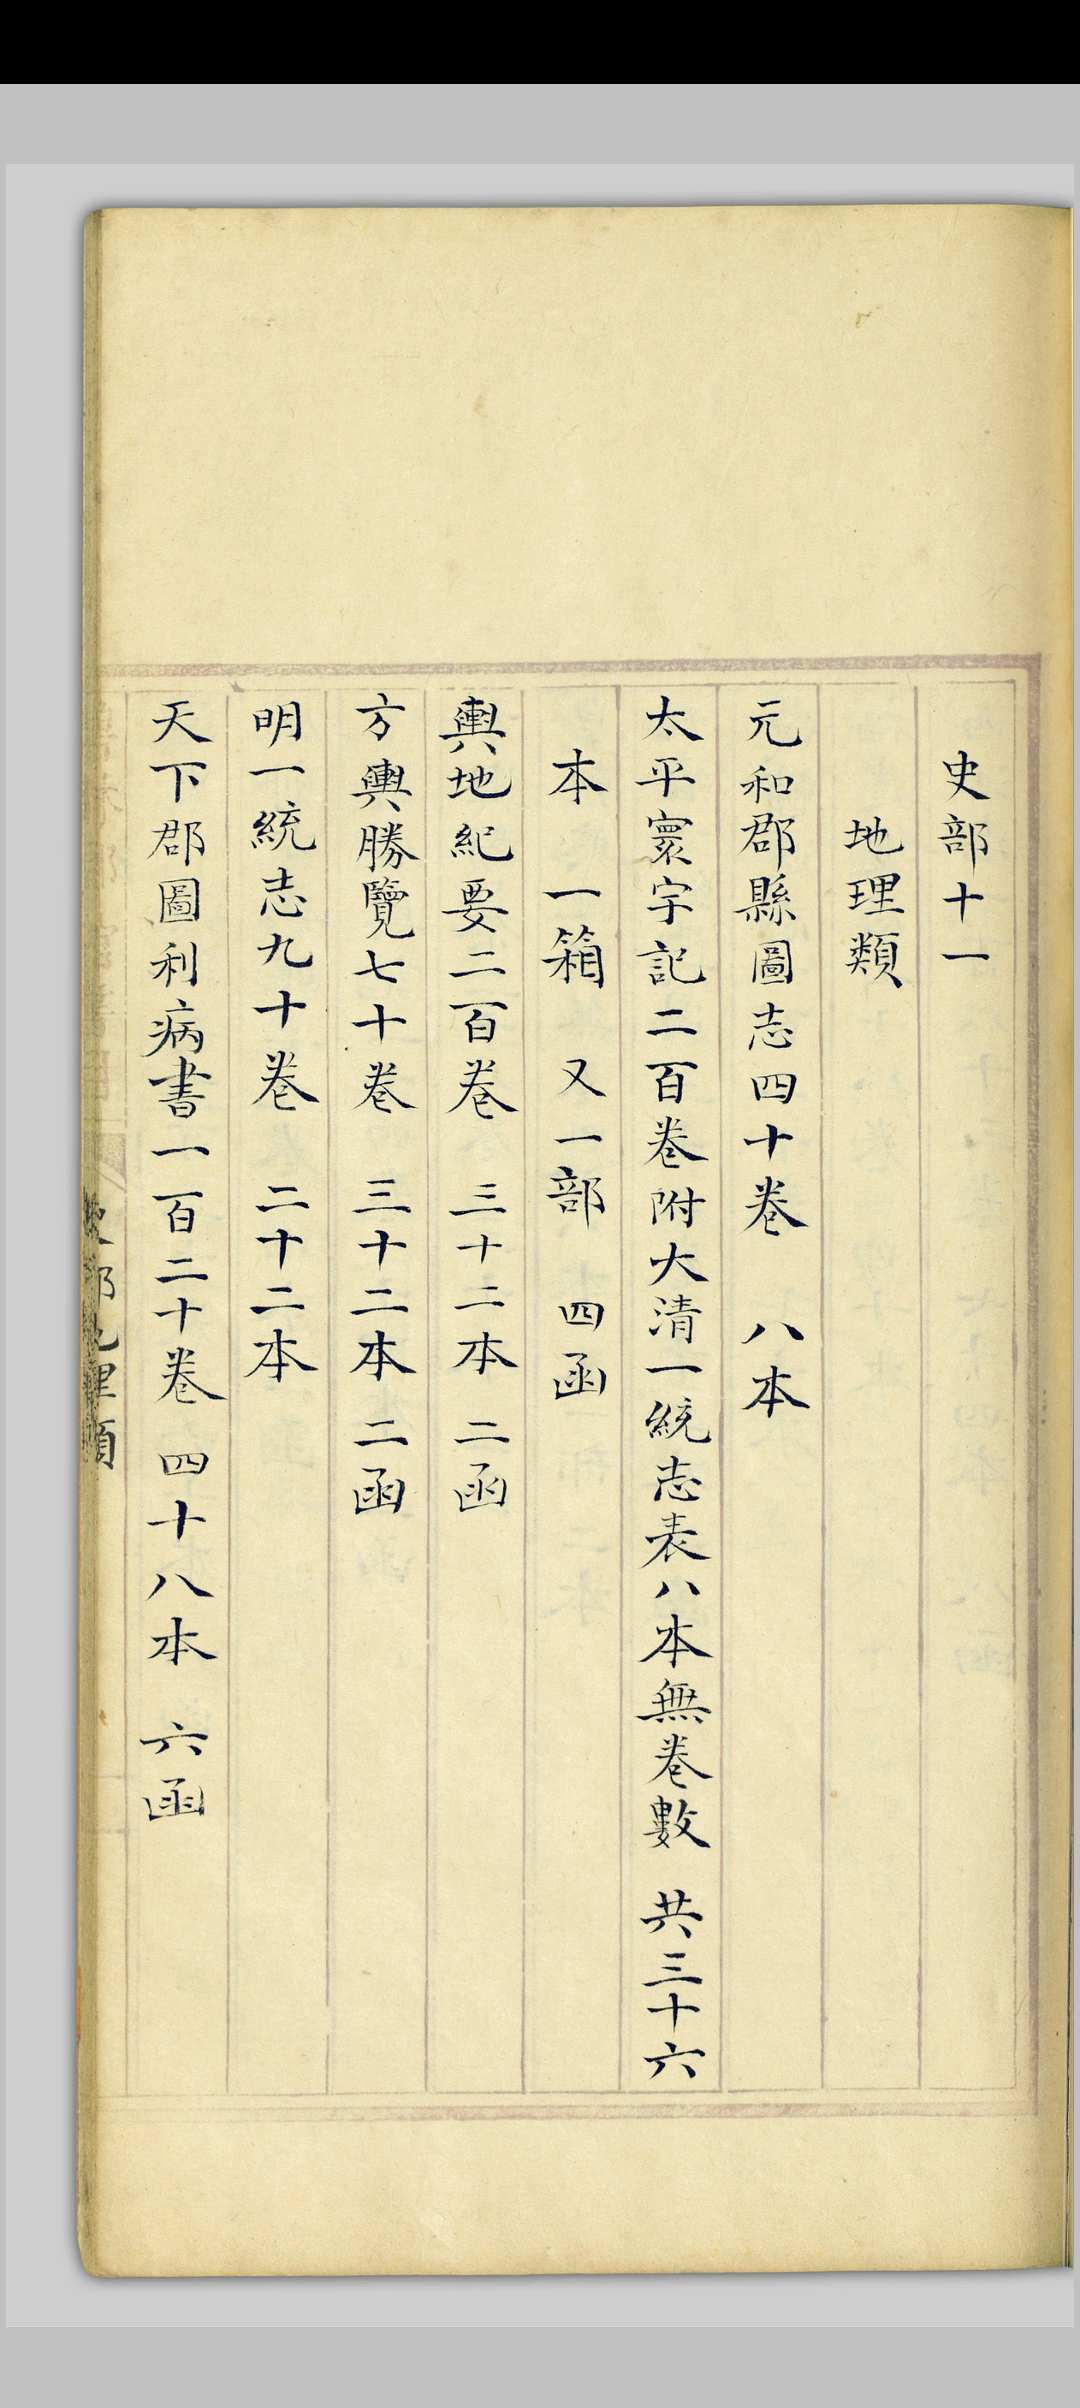 史部十一
地理類
元和郡縣圖志四十卷 八本
太平寰宇記二百卷附大清一統志表八本無卷數 共三十六
本 一箱 又一部 四函
輿地紀要二百卷 三十二本 二函
方輿勝覽七十卷 三十二本 二函
明一統志九十卷 二十二本
天下郡圖利病書一百二十卷 四十八本 六函
史部地理類